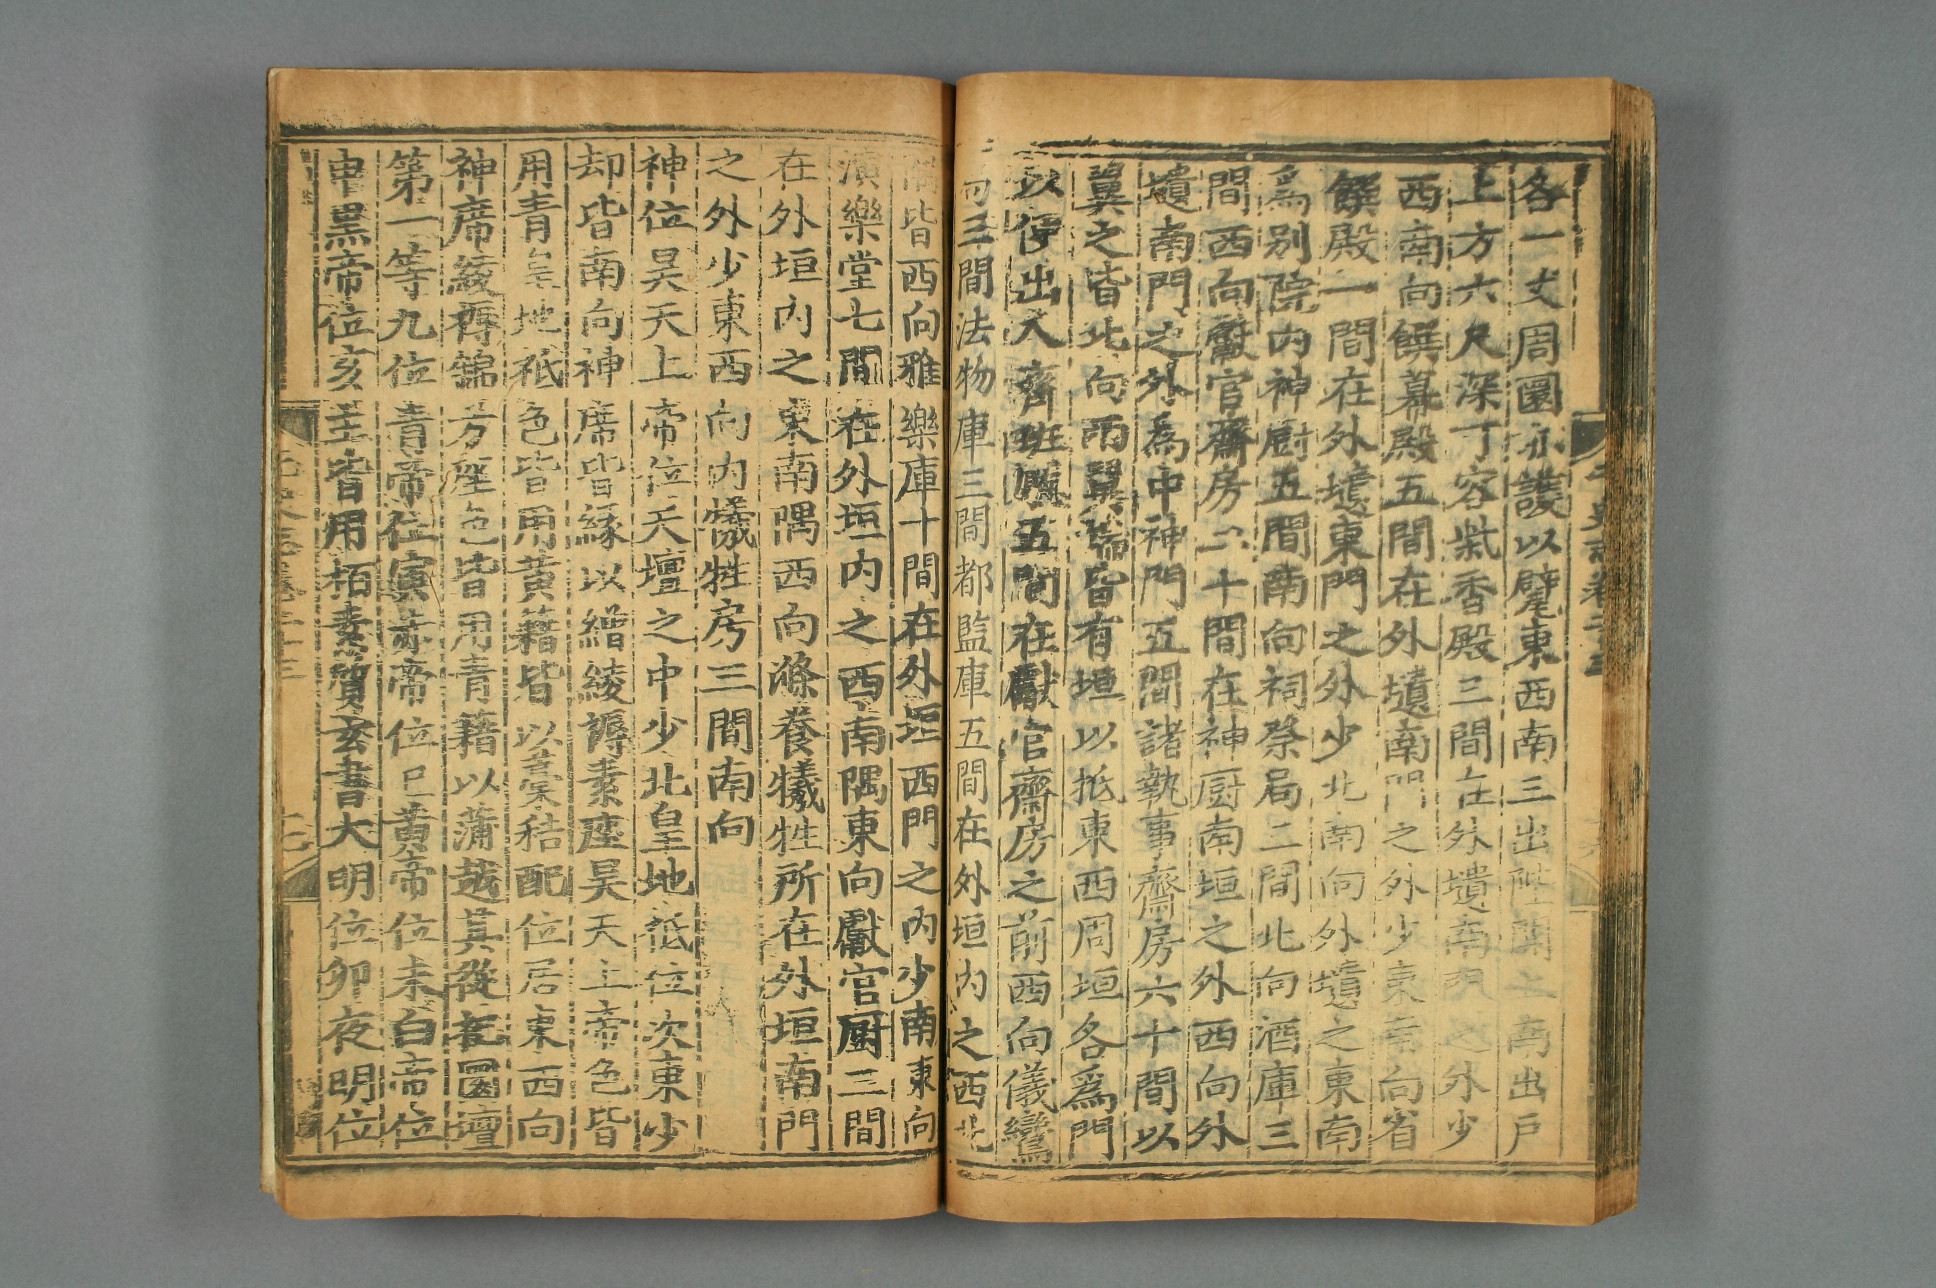 各一丈周圍亦護以甓東西南三出陛開上南出戶
上方六尺深丁容柴香殿三間在外壝南門之外少
西南向饌幕殿五間在外壝南門之外少東南向省
饌殿一間在外壝東門之外少北南向外壝之東南
爲別院內神廚五間南向祠祭局三間北向酒庫三
間西向獻官齋房二十間在神廚南垣之外西向外
壝南門之外爲中神門五間諸執事齋房六十間以
翼之皆北向兩翼端皆有垣以抵東西周垣各爲門
以便出入齊班廳五間在獻官齋房之前西向儀鸞
三間法物庫三間都監庫五間在外垣內之西北
隅皆西向雅樂庫十間在外垣西門之內少南東向
演樂堂七間在外垣內之西南隅東向獻官廚三間
在外垣內之東南隅西向滌養犧牲所在外垣南門
之外少東西向內犧牲房三間南向
神位昊天上帝位天壇之中少北皇地祗位次東少
却皆南向神席皆緣以繒綾褥素座昊天上帝色皆
用青皇地祗色皆用黃籍皆以藁秸配位居東西向
神席綾褥錦方座色皆用青籍以蒲越其從祀圜壇
第一等九位青帝位寅赤帝位巳黃帝位未白帝位
申黑帝位亥主皆用柏素質玄書大明位卯夜明位
元史志卷二十三